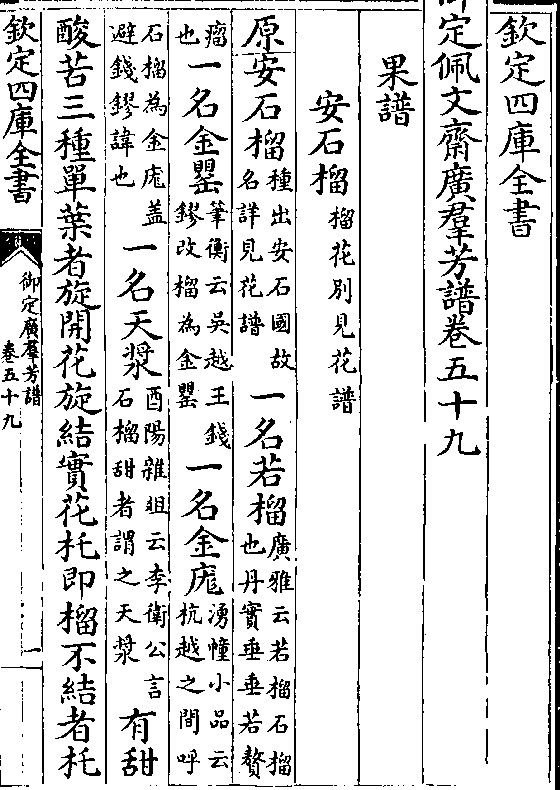 欽定四庫全書
御定佩文齋廣羣芳譜卷五十九
果譜
安石榴榴花別見花譜
原安石榴種出安石國故名詳見花譜一名若榴廣雅云若榴石榴也丹實垂垂若贅
瘤也一名金罌筆衡云吳越王錢鏐改榴為金罌一名金庬湧幢小品云杭越之間呼
石榴為金庬蓋避錢鏐諱也一名天漿酉陽雜俎云李衛公言石榴甜者謂之天漿有甜
酸苦三種單葉者旋開花旋結實花托即榴不結者托
欽定四庫全書
御定廣羣芳譜
卷五十九
一